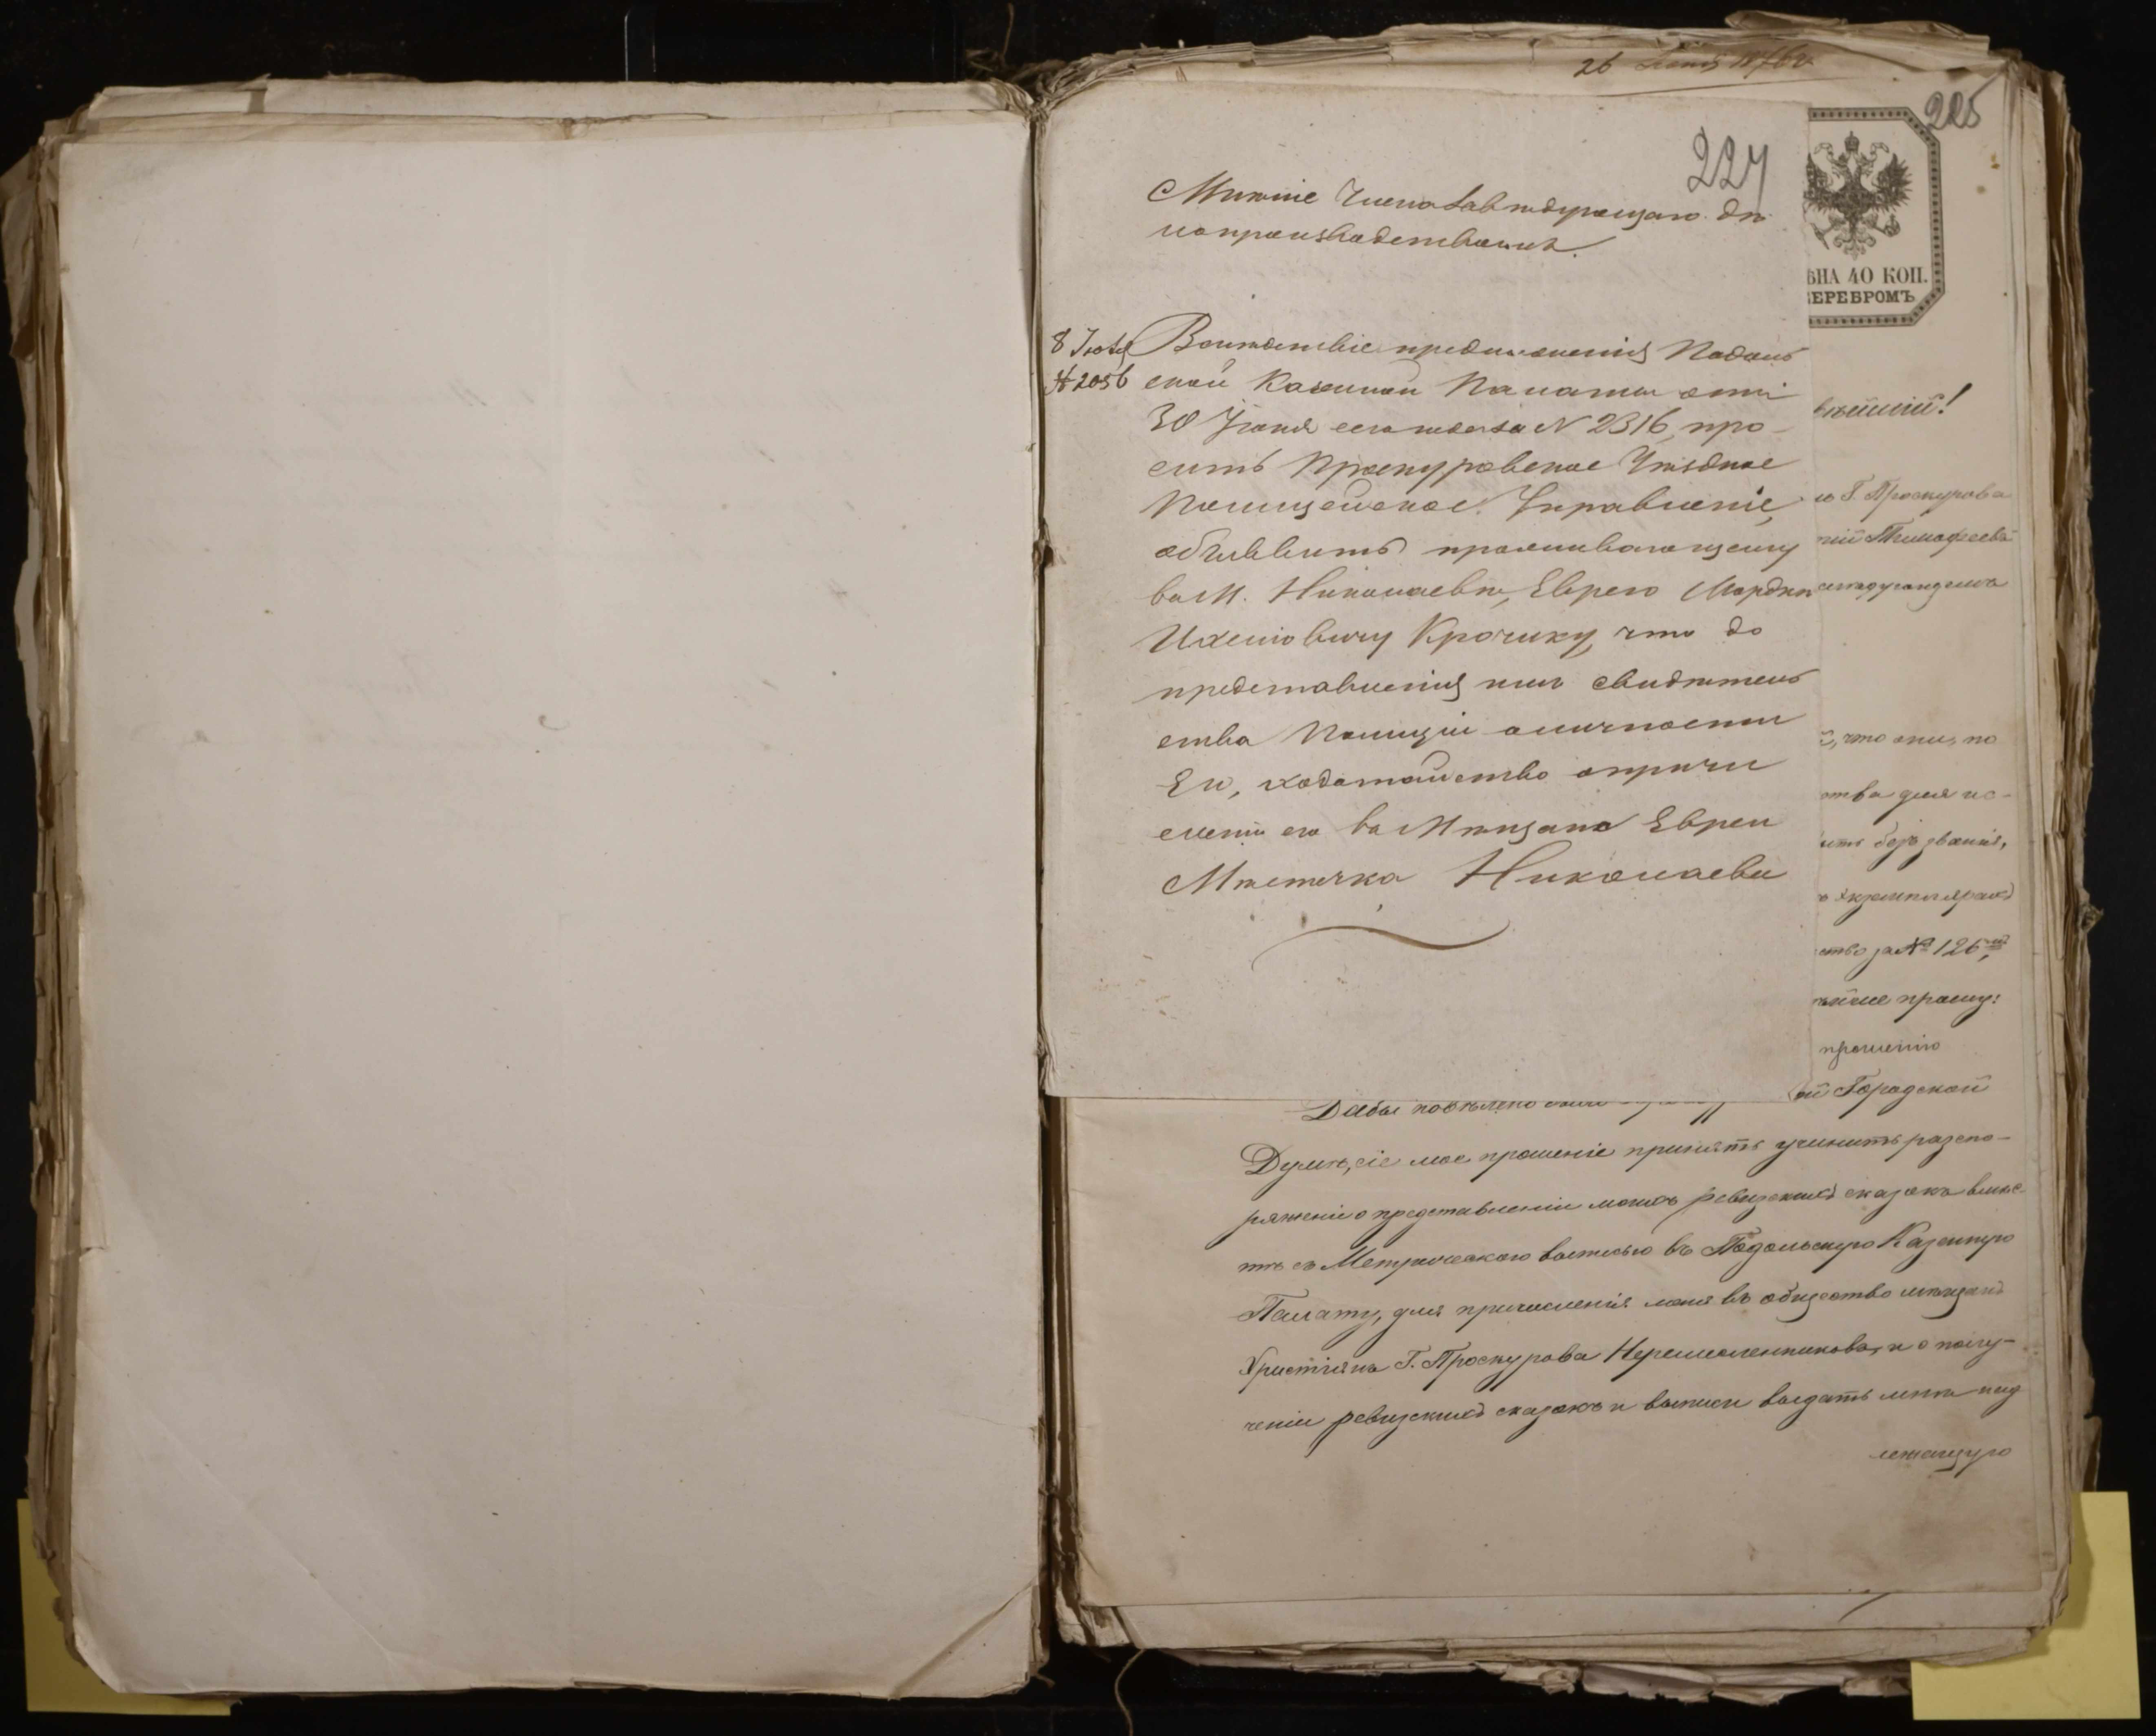 26 1876 г.
225
224
ѢНА 40 КОП.
СЕРЕБРОМЪ
Мнѣніе Члена завѣдующаго дѣ
лопроизводствомъ.
8 Іюля
№ 2056
Вслѣдствіе предложенія Подоль
ской Казенной Палаты отъ
30 Іюня сего года за N 2316, про-
сить Проскуровское Уѣздное
Полицейское Управленіе,
объявить проживающему
въ М. Николаевѣ, Еврею Мордк
Ихелювичу Крочику, что до
представленія имъ свидѣтель
ства Полиціи о личности
Его, ходатайство о причи
сленіи его въ Мѣщане Евреи
Мѣстечка Николаева
вѣйшій!
Г. Проскурова
Тимофеевъ
что они, по
ства для ис-
ить безъ званія,
экземплярахъ
ство за № 126
прошу:
прошенію
ой Городской
Дабы повѣлено
Думѣ, сіе мое прошеніе принять учинить распо-
ряженіе о представленіи моихъ ревизскихъ сказокъ вмѣс-
тѣ съ Метрическою выписью въ Подольскую Казенную
Палату, для причисленія меня въ общество мѣщанъ
Христіянъ Г. Проскурова и о полу-
ченіи ревизскихъ сказокъ и выписи выдать мнѣ над
лежащую